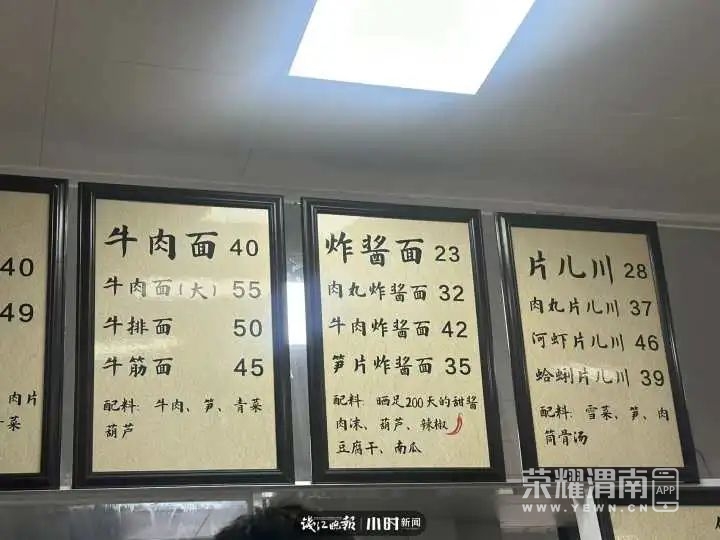 40
49
肉片
菜
牛肉面 40
牛肉面(大) 55
牛排面 50
牛筋面 45
配料: 牛肉、笋、青菜
葫芦
炸酱面 23
肉丸炸酱面 32
牛肉炸酱面 42
笋片炸酱面 35
配料: 晒足200天的甜酱
肉沫、葫芦、辣椒
豆腐干、南瓜
片儿川 28
肉丸片儿川 37
河虾片儿川 46
蛤蜊片儿川 39
配料: 雪菜、笋、肉
筒骨汤
荣耀渭南 APP
WWW.YEWN.CN
钱江晚报 小时新闻